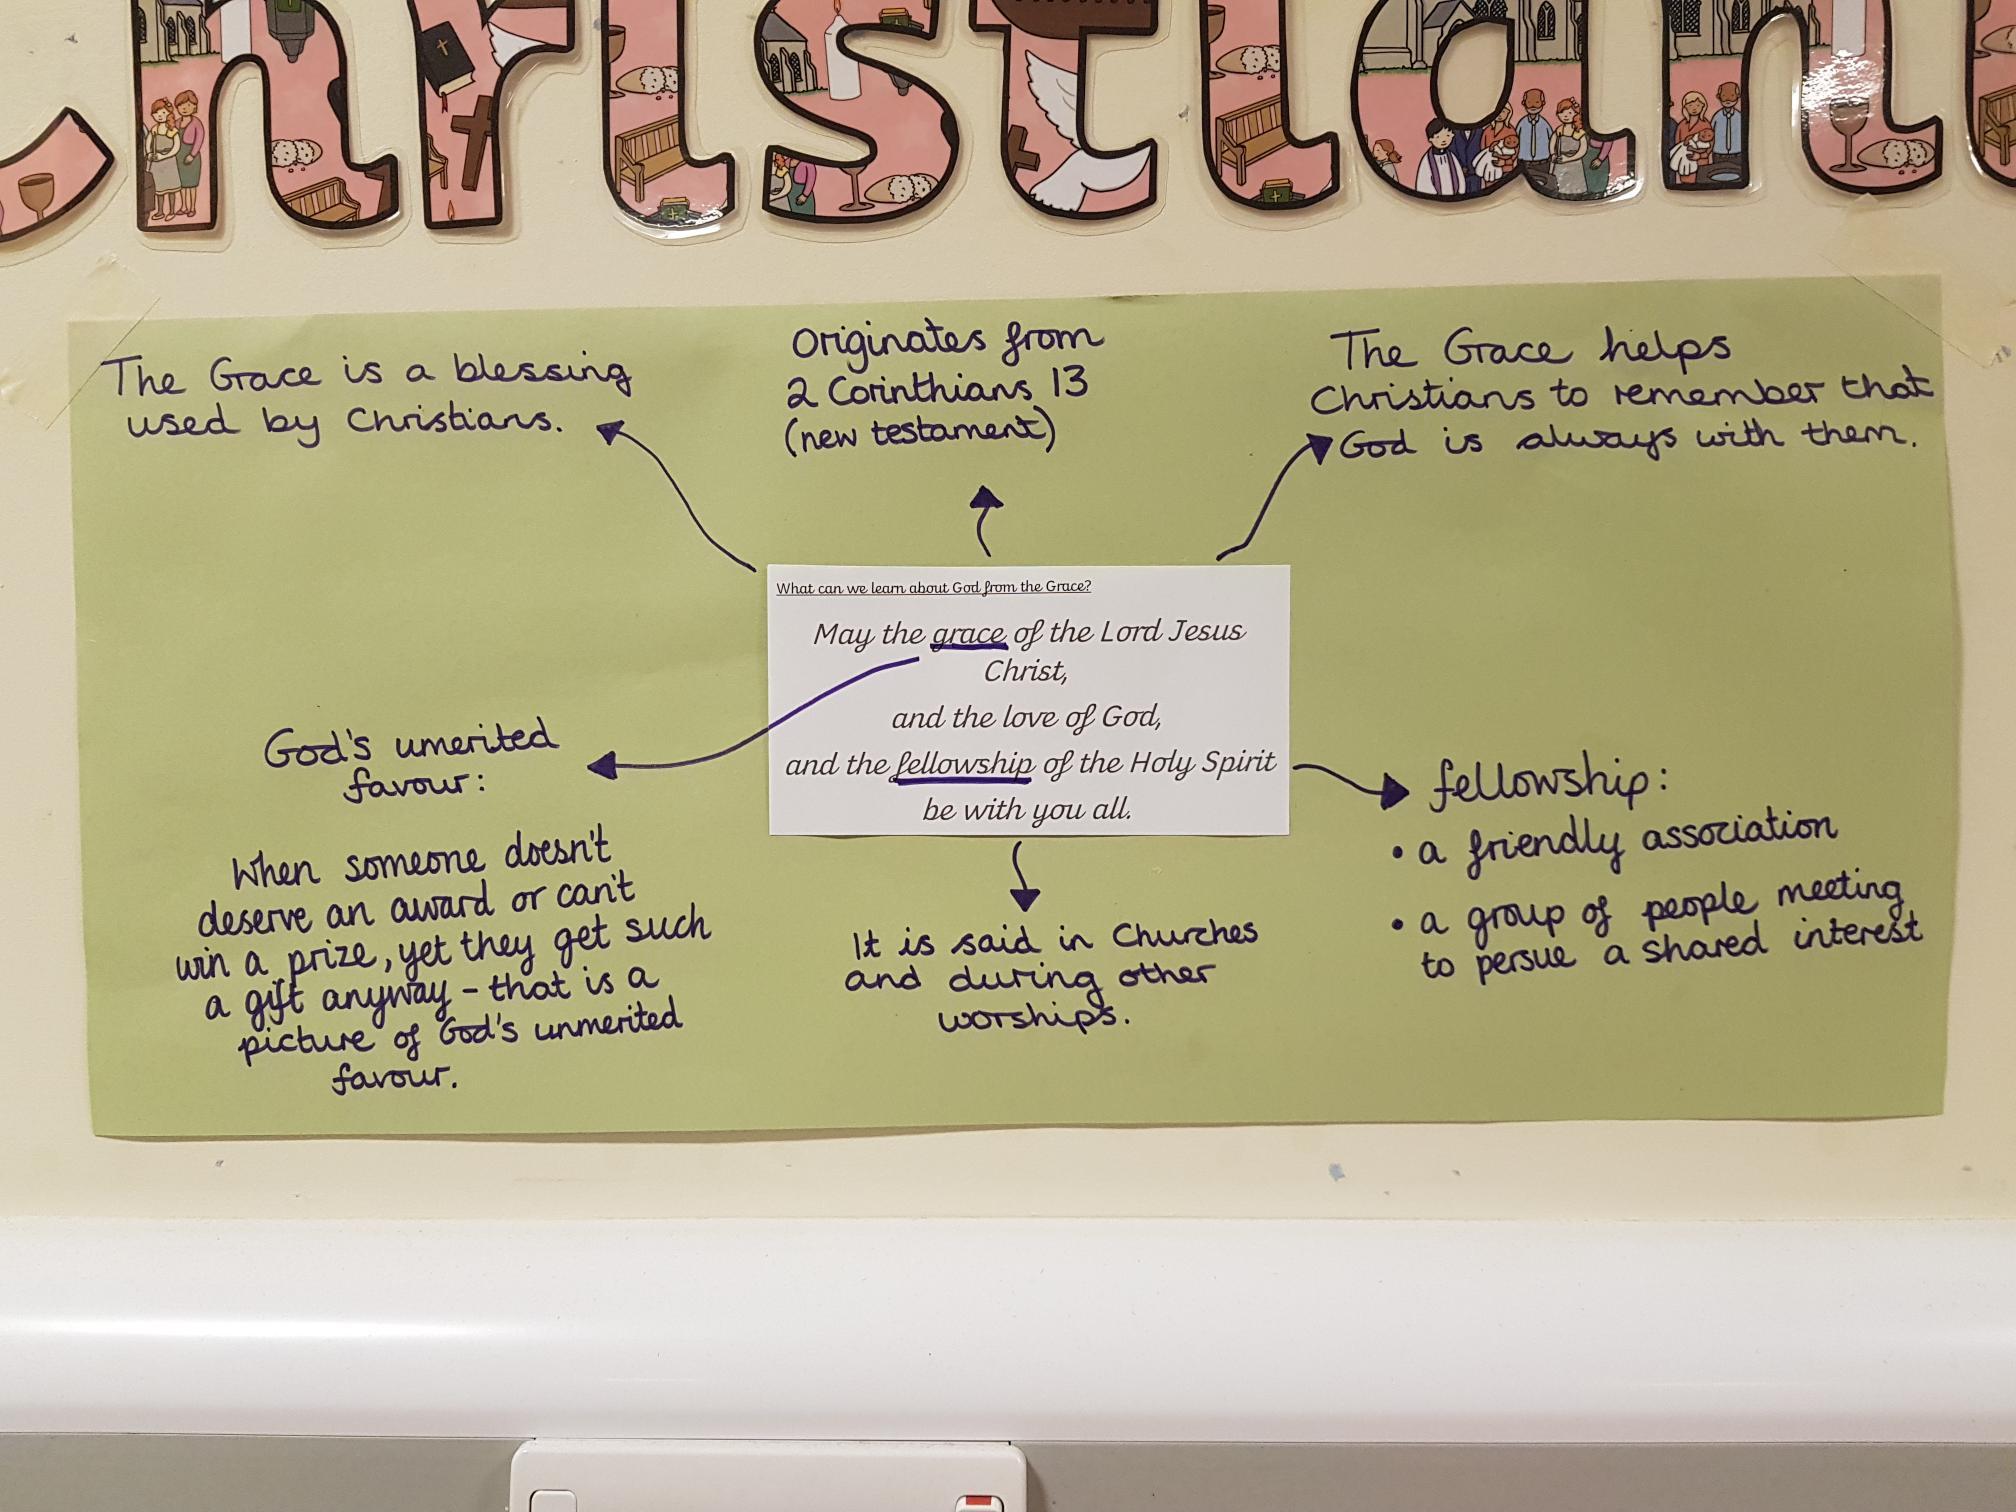 Christiani
The Grace is a blessing
used by Christians.
Originates from
2 Corinthians 13
(new testament)
The Grace helps
Christians to remember that
God is always with them.
What can we learn about God from the Grace?
May the grace of the Lord Jesus
Christ,
and the love of God,
and the fellowship of the Holy Spirit
be with you all.
God's umerited
favour:
When someone doesn't
deserve an award or can't
win a prize, yet they get such
a gift anyway - that is a
picture of God's unmerited
favour.
It is said in Churches
and during other
worships.
fellowship:
• a friendly association
• a group of people meeting
to persue a shared interest